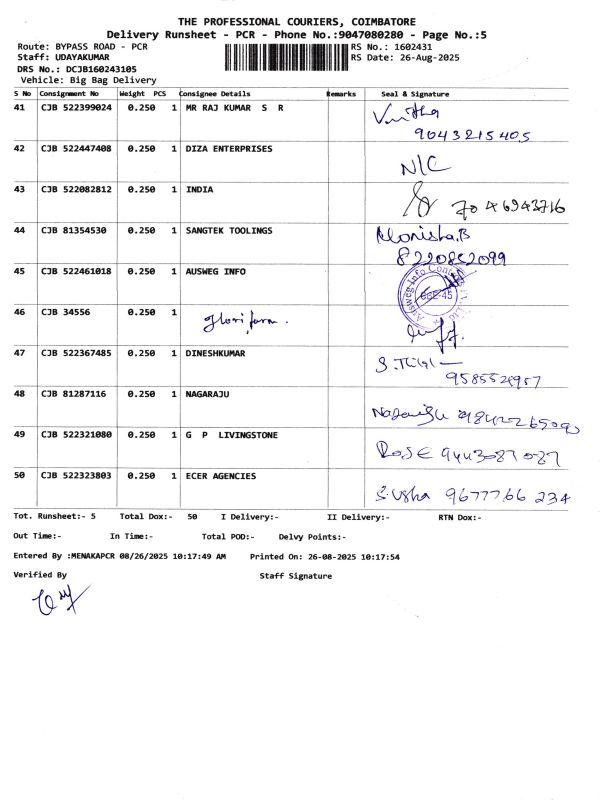 THE PROFESSIONAL COURIERS, COIMBATORE
Delivery Runsheet - PCR - Phone No.:9047080280 - Page No.:5
Route: BYPASS ROAD - PCR RS No.: 1602431
Staff: UDAYAKUMAR RS Date: 26-Aug-2025
DRS No.: DCJB160243105
Vehicle: Big Bag Delivery
S No Consignment No Weight PCS Consignee Details Remarks Seal & Signature
41 CJB 522399024 0.250 1 MR RAJ KUMAR S R
9043215405
42 CJB 522447408 0.250 1 DIZA ENTERPRISES N/C
43 CJB 522082812 0.250 1 INDIA 70 46943716
44 CJB 81354530 0.250 1 SANGTEK TOOLINGS Monisha.B
8220852099
45 CJB 522461018 0.250 1 AUSWEG INFO
46 CJB 34556 0.250 1
47 CJB 522367485 0.250 1 DINESHKUMAR
48 CJB 81287116 0.250 1 NAGARAJU
49 CJB 522321080 0.250 1 G P LIVINGSTONE ROSE 9443087087
50 CJB 522323803 0.250 1 ECER AGENCIES S. Usha 9677766 234
Tot. Runsheet:- 5 Total Dox:- 50 I Delivery:- II Delivery:- RTN Dox:-
Out Time:- In Time:- Total POD:- Delvy Points:-
Entered By :MENAKAPCR 08/26/2025 10:17:49 AM Printed On: 26-08-2025 10:17:54
Verified By Staff Signature